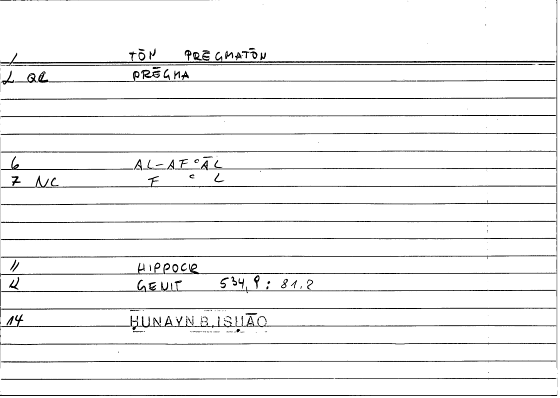 1 TŌN PRĒGMATŌN
2 QR PRĒGMA
6 AL-AFʿĀL
7 NC F ʿ L
11 HIPPOCR
12 GENIT 534, 9 : 81.2
14 ḤUNAYN B. ISḤĀQ